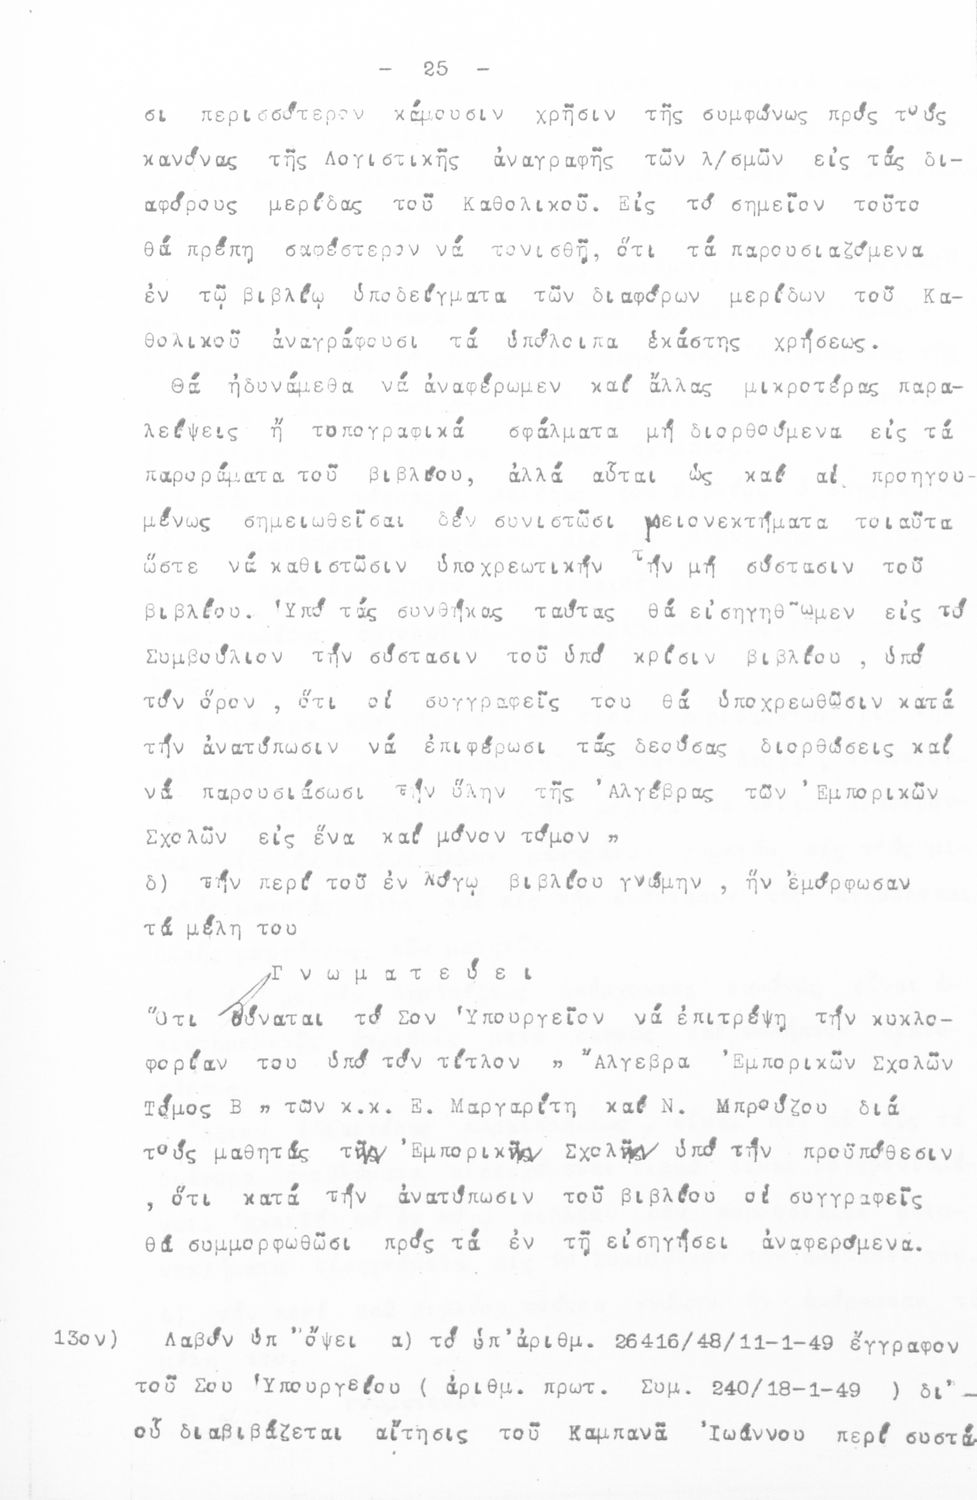 - 25 -
σι περισσότερον κάμουσιν χρῆσιν τῆς συμφώνως πρός τούς
κανόνας τῆς Λογιστικῆς ἀναγραφῆς τῶν λ/σμῶν εἰς τάς δι-
αφόρους μερίδας τοῦ Καθολικοῦ. Εἰς τό σημεῖον τοῦτο
θά πρέπη σαφέστερον νά τονισθῆ, ὅτι τά παρουσιαζόμενα
ἐν τῷ βιβλίῳ ὑποδείγματα τῶν διαφόρων μερίδων τοῦ Κα-
θολικοῦ ἀναγράφουσι τά ὑπόλοιπα ἑκάστης χρήσεως.
Θά ἠδυνάμεθα νά ἀναφέρωμεν καί ἄλλας μικροτέρας παρα-
λείψεις ἤ τυπογραφικά σφάλματα μή διορθούμενα εἰς τά
παροράματα τοῦ βιβλίου, ἀλλά αὗται ὡς καί αἱ προηγου-
μένως σημειωθεῖσαι δέν συνιστῶσι μειονεκτήματα τοιαῦτα
ὥστε νά καθιστῶσιν ὑποχρεωτικήν τήν μή σύστασιν τοῦ
βιβλίου. Ὑπό τάς συνθήκας ταύτας θά εἰσηγηθῶμεν εἰς τό
Συμβούλιον τήν σύστασιν τοῦ ὑπό κρίσιν βιβλίου , ὑπό
τόν ὅρον , ὅτι οἱ συγγραφεῖς του θά ὑποχρεωθῶσιν κατά
τήν ἀνατύπωσιν νά ἐπιφέρωσι τάς δεούσας διορθώσεις καί
νά παρουσιάσωσι τήν ὕλην τῆς Ἀλγέβρας τῶν Ἐμπορικῶν
Σχολῶν εἰς ἕνα καί μόνον τόμον "
δ) τήν περί τοῦ ἐν λόγῳ βιβλίου γνώμην , ἥν ἐμόρφωσαν
τά μέλη του
Γ ν ω μ α τ ε ύ ε ι
Ὅτι δύναται τό Σον Ὑπουργεῖον νά ἐπιτρέψῃ τήν κυκλο-
φορίαν του ὑπό τόν τίτλον " Ἄλγεβρα Ἐμπορικῶν Σχολῶν
Τόμος Β " τῶν κ.κ. Ε. Μαργαρίτη καί Ν. Μπρούζου διά
τούς μαθητάς τῆς Ἐμπορικῆς Σχολῆς ὑπό τήν προϋπόθεσιν
, ὅτι κατά τήν ἀνατύπωσιν τοῦ βιβλίου οἱ συγγραφεῖς
θά συμμορφωθῶσι πρός τά ἐν τῇ εἰσηγήσει ἀναφερόμενα.
13ον) Λαβόν ὑπ ὄψει α) τό ὑπ'ἀριθμ. 26416/48/11-1-49 ἔγγραφον
τοῦ Σου Ὑπουργείου ( ἀριθμ. πρωτ. Συμ. 240/18-1-49 ) δι'-
οὗ διαβιβάζεται αἴτησις τοῦ Καμπανᾶ Ἰωάννου περί συστά